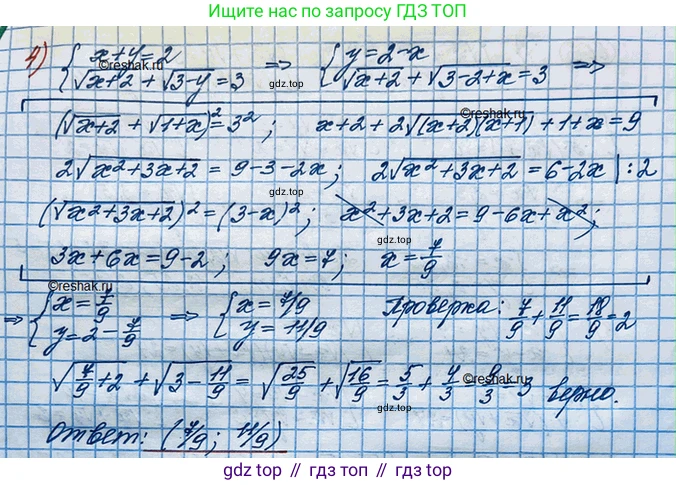 Ищите нас по запросу ГДЗ ТОП
4) { x+y=2 => { y=2-x
√x+2 + √3-y = 3 √x+2 + √3-2+x = 3 =>
©reshak.ru gdz.top
(√x+2 + √1+x)² = 3²; x+2+2√(x+2)(x+1) + 1+x = 9
©reshak.ru
2√x²+3x+2 = 9-3-2x; 2√x²+3x+2 = 6-2x |:2
gdz.top
(√x²+3x+2)² = (3-x)²; x²+3x+2 = 9-6x+x²;
gdz.top
3x+6x = 9-2; 9x=7; x=7/9
©reshak.ru
=> { x=7/9 => { x=7/9 Проверка: 7/9 + 11/9 = 18/9 = 2
y=2-7/9 y=11/9
gdz.top
√7/9+2 + √3-11/9 = √25/9 + √16/9 = 5/3 + 4/3 = 9/3 = 3 верно.
©reshak.ru gdz.top
Ответ: (7/9; 11/9)
gdz top // гдз топ // gdz.top